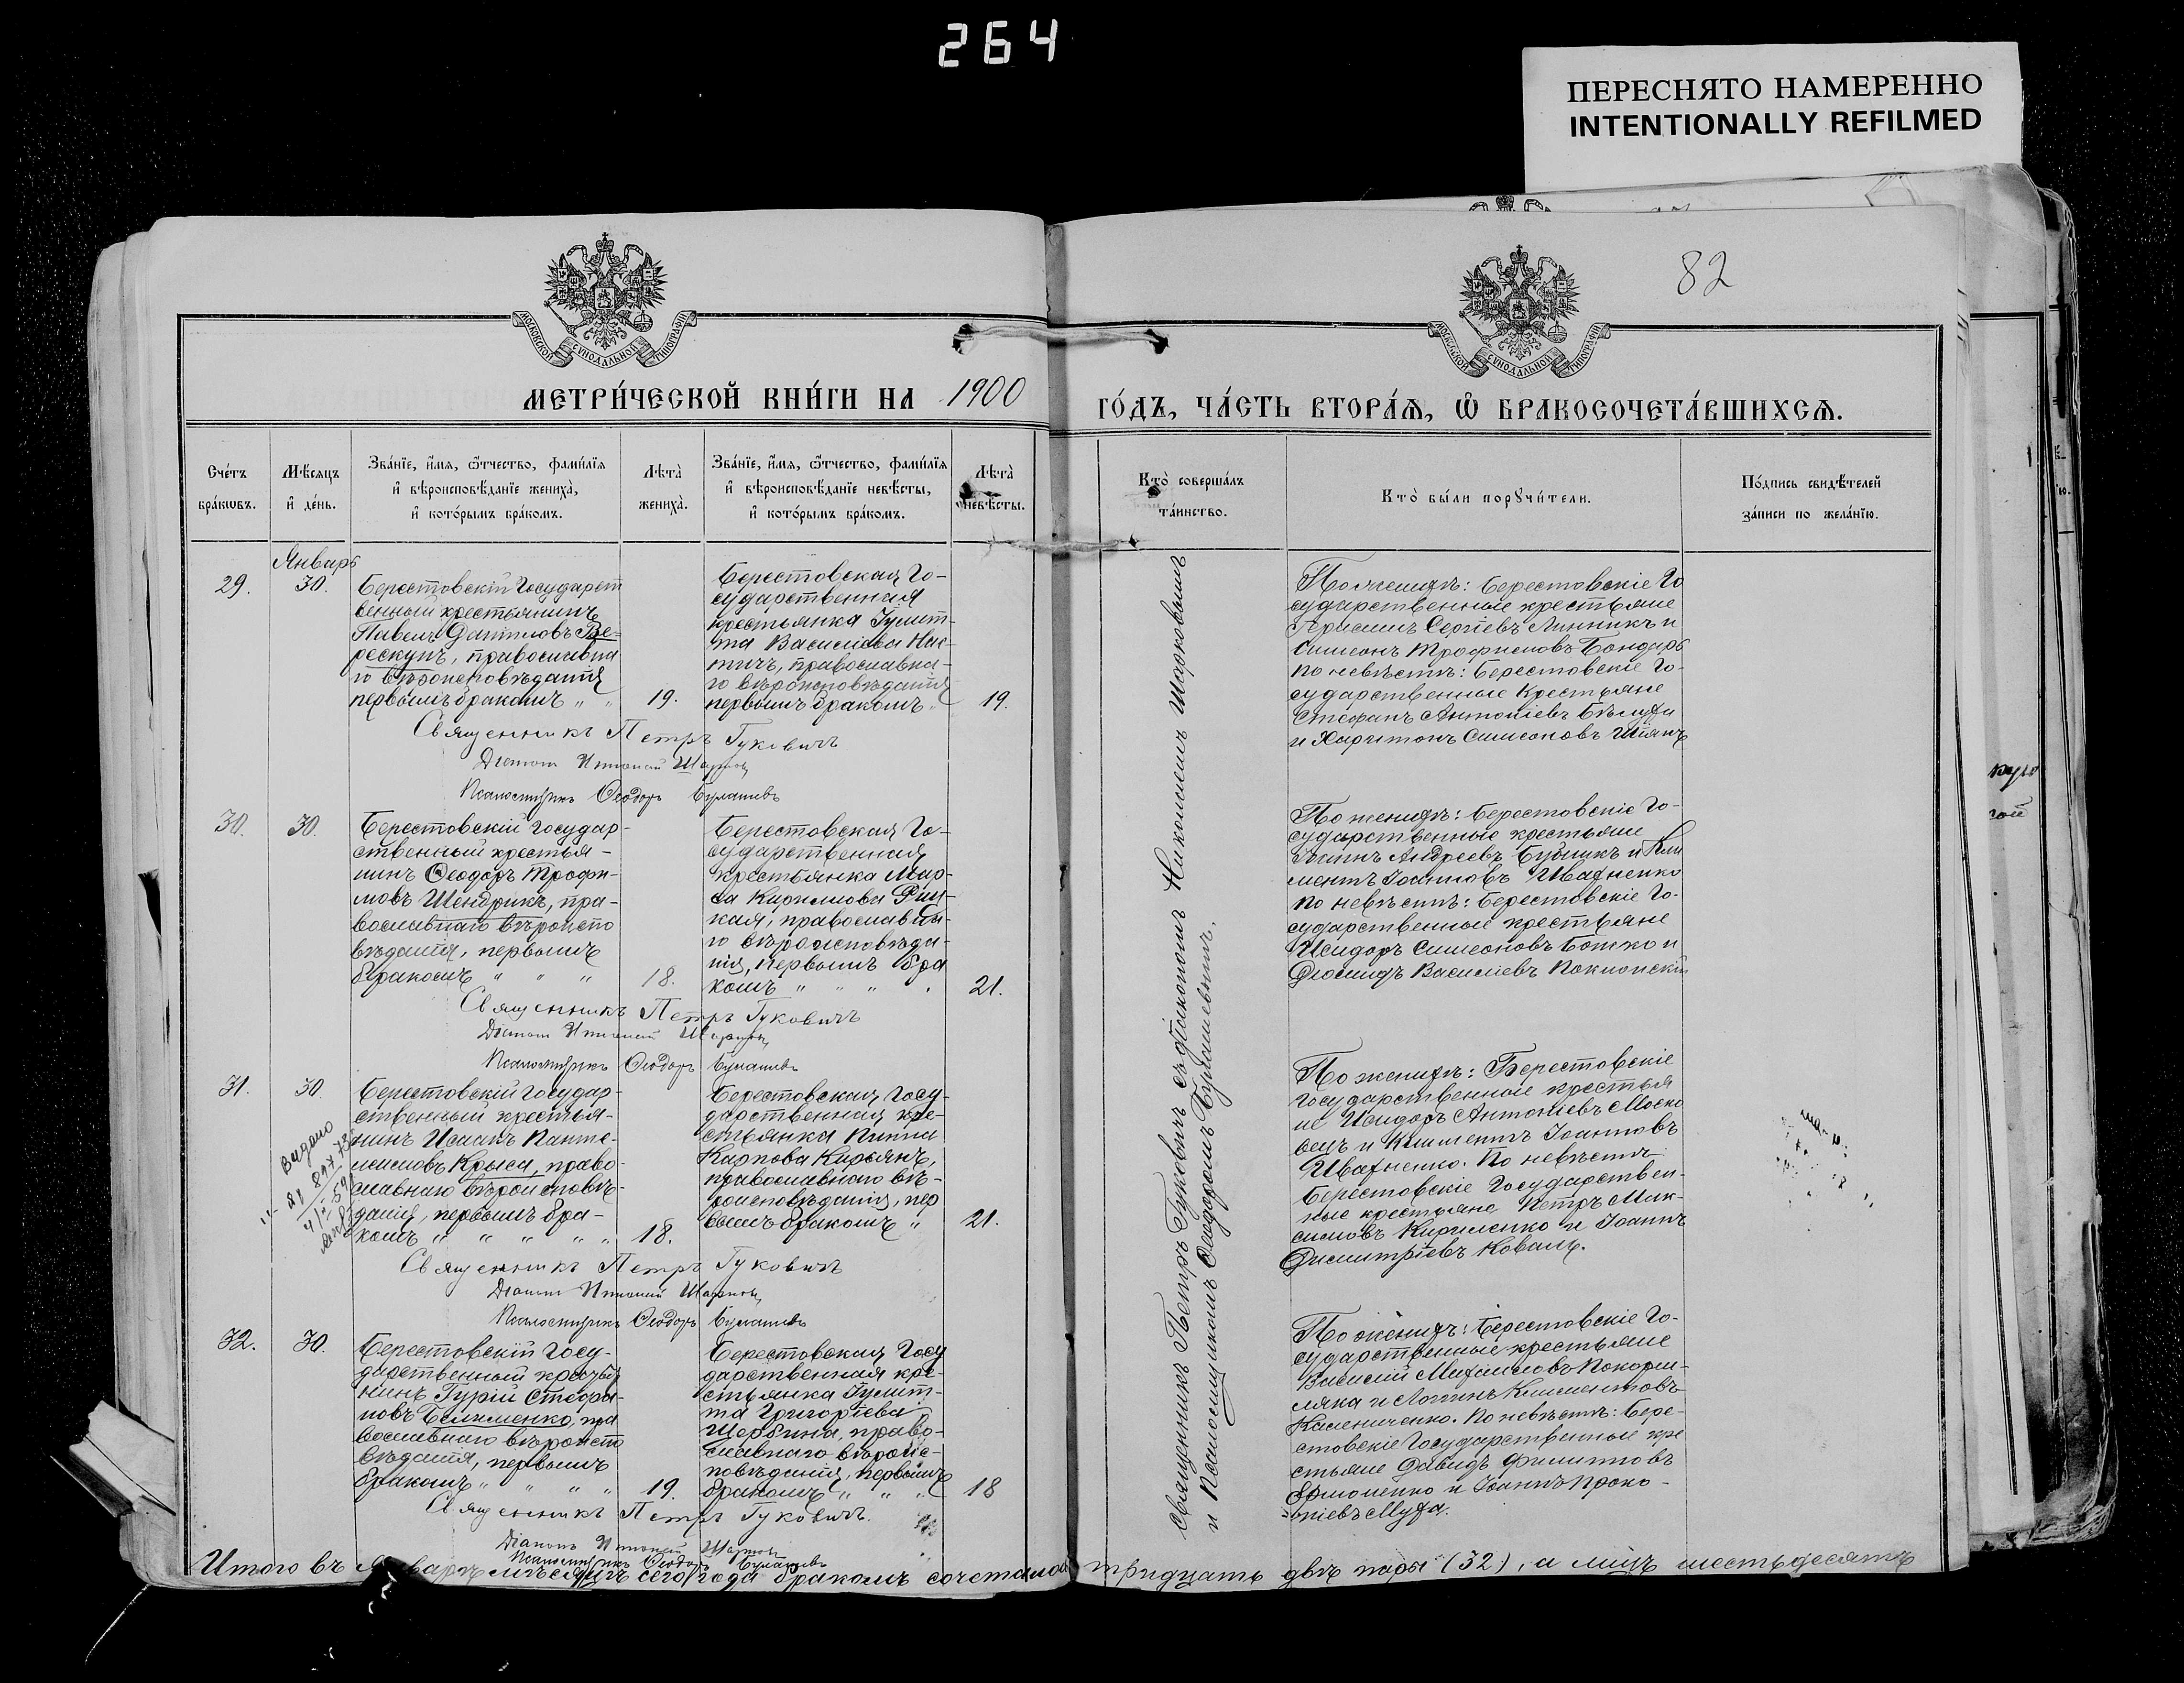 264
ПЕРЕСНЯТО НАМЕРЕННО
INTENTIONALLY REFILMED
82
МОСКОВСКОЙ СѴНОДАЛЬНОЙ ТИПОГРАФІИ
МОСКОВСКОЙ СѴНОДАЛЬНОЙ ТИПОГРАФІИ
МЕТРИ́ЧЕСКОЙ КНИ́ГИ НА 1900
ГО́ДЪ, ЧА́СТЬ ВТОРА́Ѧ, Ѽ БРАКОСОЧЕТА́ВШИХСѦ.
Сче́тъ
бра́кѡвъ.
Мѣ́сяцъ
и҆ де́нь.
Зва́нїе, и҆́мѧ, ѻ҆́тчество, фами́лїѧ
и҆ вѣроисповѣ́данїе жениха̀,
и҆ кото́рымъ бра́комъ.
Лѣта̀
жениха̀.
Зва́нїе, и҆́мѧ, ѻ҆́тчество, фами́лїѧ
и҆ вѣроисповѣ́данїе невѣ́сты,
и҆ кото́рымъ бра́комъ.
Лѣта̀
невѣ́сты.
Кто̀ соверша́лъ
та́инство.
Кто̀ бы́ли порꙋчи́тели.
По́дпись свидѣ́телей
за́писи по жела́нїю.
Январь
29.
30.
Берестовскій Государст
венный крестьянинъ
Павелъ Даниловъ Ве-
рескунъ, православна
го вѣроисповѣданія
первымъ бракомъ " "
19.
Берестовская Го-
сударственная
крестьянка Іулит-
та Васильева
православна-
го вѣроисповѣданія
первымъ бракомъ "
19.
Священникъ Петръ Гуковичъ
Діаконъ
Псаломщикъ Ѳеодоръ Булашевъ
По женихѣ: Берестовскіе Го
сударственные крестьяне
Сергіевъ Линникъ и
Симеонъ Трофимовъ Бондарь
по невѣстѣ: Берестовскіе Го-
сударственные крестьяне
Стефанъ Антоніевъ
и Харитонъ Симеоновъ Шіянъ
30.
30.
Берестовскій Государ-
ственный крестья-
нинъ Ѳеодоръ Трофи-
мовъ Шендрикъ, пра-
вославнаго вѣроиспо
вѣданія, первымъ
бракомъ " " "
18.
Берестовская Го-
сударственная
крестьянка Мар-
ѳа Кириллова
православна-
го вѣроисповѣда-
нія, первымъ бра
комъ " " " "
21.
Священникъ Петръ Гуковичъ
Діаконъ
Псаломщикъ Ѳеодоръ Булашевъ
По женихѣ: Берестовскіе Го-
сударственные крестьяне
Андреевъ и Кли
ментъ Іоанновъ Ивахненко
по невѣстѣ: Берестовскіе Го-
сударственные крестьяне
Исидоръ Симеоновъ Бошко и
Діомидъ Васильевъ
31.
30.
Видано
Берестовскій Государ-
ственный крестья-
нинъ Исаакъ Панте-
леимовъ Крыса, право-
славнаго вѣроисповѣ-
данія, первымъ бра-
комъ " " " " "
18.
Берестовская Госу-
дарственная кре-
стьянка
Карпова Кирьянъ,
православнаго вѣ-
роисповѣданія, пер
вымъ бракомъ "
21.
Священникъ Петръ Гуковичъ
Діаконъ
Псаломщикъ Ѳеодоръ Булашевъ
По женихѣ: Берестовскіе
Государственные крестья
не Исидоръ Антоніевъ Моско
вецъ и Климентъ Іоанновъ
Ивахненко. По невѣстѣ
Берестовскіе Государствен-
ные крестьяне Петръ Мак-
симовъ Кириленко и Іоаннъ
Димитріевъ Коваль.
32.
30.
Берестовскій Госу-
дарственный крестья
нинъ Гурій Стефа-
новъ пра
вославнаго вѣроиспо
вѣданія, первымъ
бракомъ " " " "
19.
Берестовская Госу
дарственная кре-
стьянка Іулит-
та Григоріева
Щербина, право-
славнаго вѣроис-
повѣданія, первымъ
бракомъ " " "
18
Священникъ Петръ Гуковичъ.
Діаконъ
Псаломщикъ Ѳеодоръ Булашевъ
По женихѣ: Берестовскіе Го-
сударственные крестьяне
Василій Михаиловъ Покорми-
ляка и Логинъ Климентовъ
Каленниченко. По невѣстѣ: Бере-
стовскіе Государственные кре
стьяне Давидъ Филипповъ
Ермоленко и Іоаннъ Проко-
піевъ Муха.
Священникъ Петръ Гуковичъ съ діакономъ
и Псаломщикомъ Ѳеодоромъ Булашевымъ.
Итого въ Январѣ мѣсяцѣ сего года бракомъ сочеталось тридцать двѣ пары (32), а лицъ шестьдесятъ